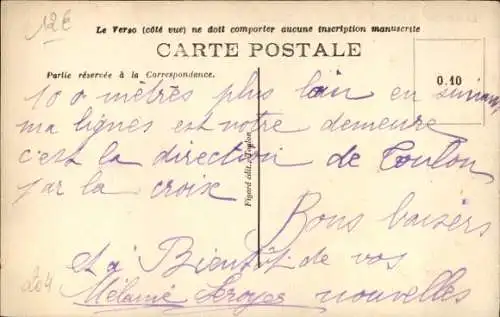 12€
Le Verso (côté vue) ne doit comporter aucune inscription manuscrite
CARTE POSTALE
Partie réservée à la Correspondance.
0.10
100 mètres plus loin en suivant
ma lignes est notre demeure
c'est la direction de Toulon
par la croix
Figard édit., Toulon
Bons baisers
et a Bientôt de vos
Mélanie Leroyer nouvelles
204